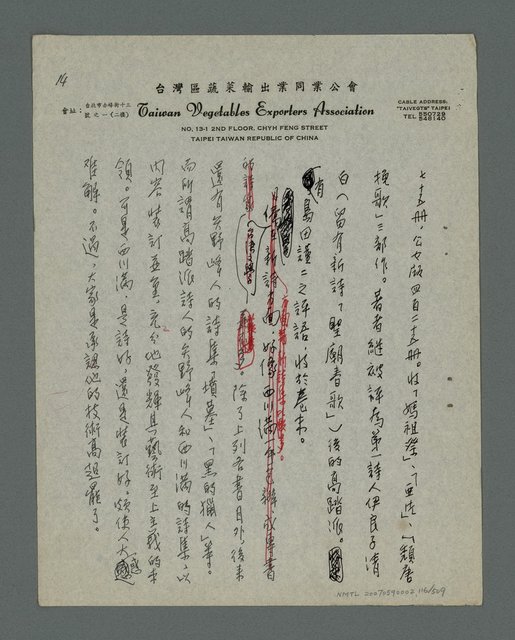 14
台灣區蔬菜輸出業同業公會
會址：台北市赤峰街十三號之一(二樓)
Taiwan Vegetables Exporters Association
CABLE ADDRESS:
"TAIVEGTS" TAIPEI
TEL 550729
548140
NO. 13-1 2ND FLOOR, CHYH FENG STREET
TAIPEI TAIWAN REPUBLIC OF CHINA
七十五册，公女版四百二十五册。收「媽祖祭」、「亞片」、「頹唐
輓歌」三部作。著者繼被評為第一詩人伊良子清
白（留有新詩「聖廟春歌」）後的高踏派。
有島田謹二之評語，收於卷末。
新詩方面，好像西川滿一手包辦
除了上列各書目外，後來
還有矢野峰人的詩集「墳墓」、「黑的獵人」等。
而所謂高踏派詩人的矢野峰人和西川滿的詩集，以
內容裝訂並重，充分地發輝其藝術至上主義的本
領。可是西川滿，是詩好，還是裝訂好，頗使人大感
难解。不過，大家是承認他的技術高超罷了。
NMTL 20070590002